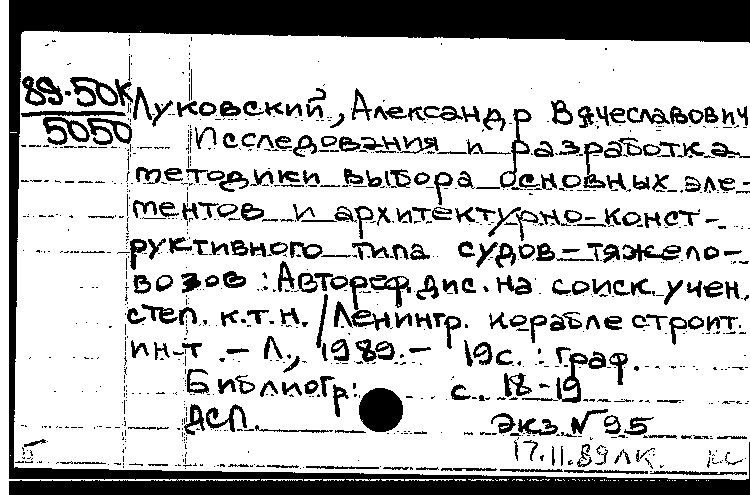 89-50к Луковский, Александр Вячеславович
5050 Исследования и разработка
методики выбора основных эле-
ментов и архитектурно-конст-
руктивного типа судов-тяжело-
возов : Автореф. дис. на соиск. учен.
степ. к.т.н. / Ленингр. кораблестроит.
ин-т. - Л., 1989. - 19 с. : граф.
Библиогр: с. 18-19
ДСП. Экз. № 95
17.11.89 ЛК.